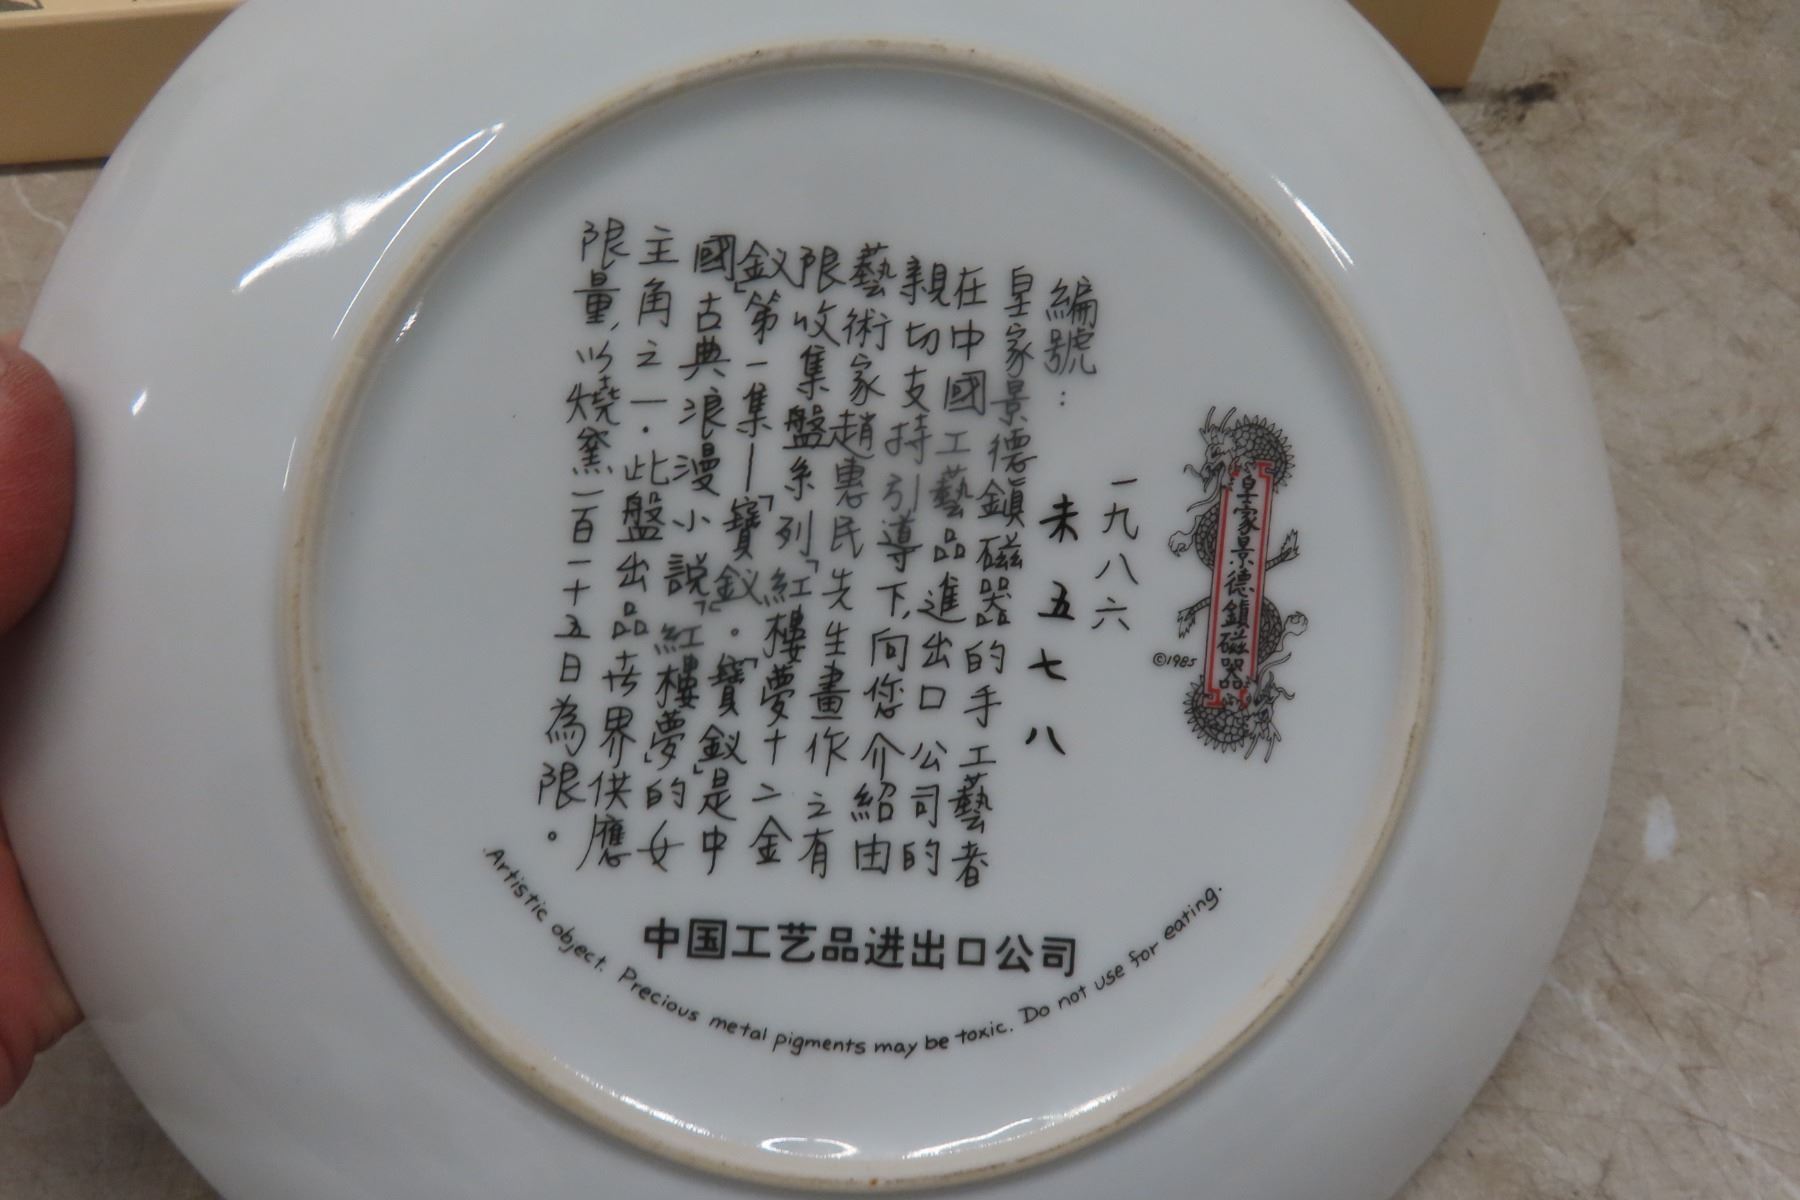 皇家景德鎮磁器
©1985
一九八六
編號：未五七八
皇家景德鎮磁器的手工藝者
在中國工藝品進出口公司的
親切支持引導下,向您介紹由
藝術家趙惠民先生畫作之有
限收集盤系列「紅樓夢十二金
釵」第一集—「寶釵」。「寶釵」是中
國古典浪漫小說「紅樓夢」的女
主角之一.此盤出品世界供應
限量,以燒窯一百一十五日為限。
中国工艺品进出口公司
Artistic object. Precious metal pigments may be toxic. Do not use for eating.